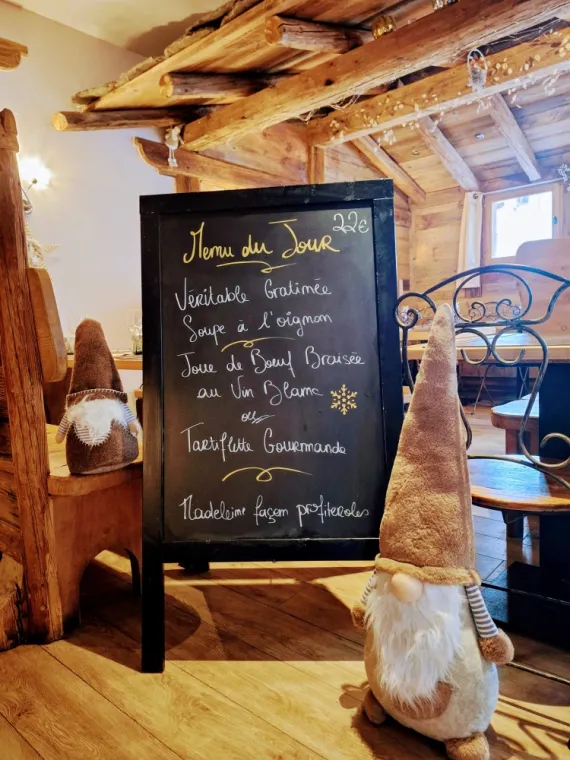 Menu du Jour 22€
Véritable Gratinée
Soupe à l'oignon
Joue de Bœuf Braisée
au Vin Blanc
ou
Tartiflette Gourmande
Madeleine façon profiteroles